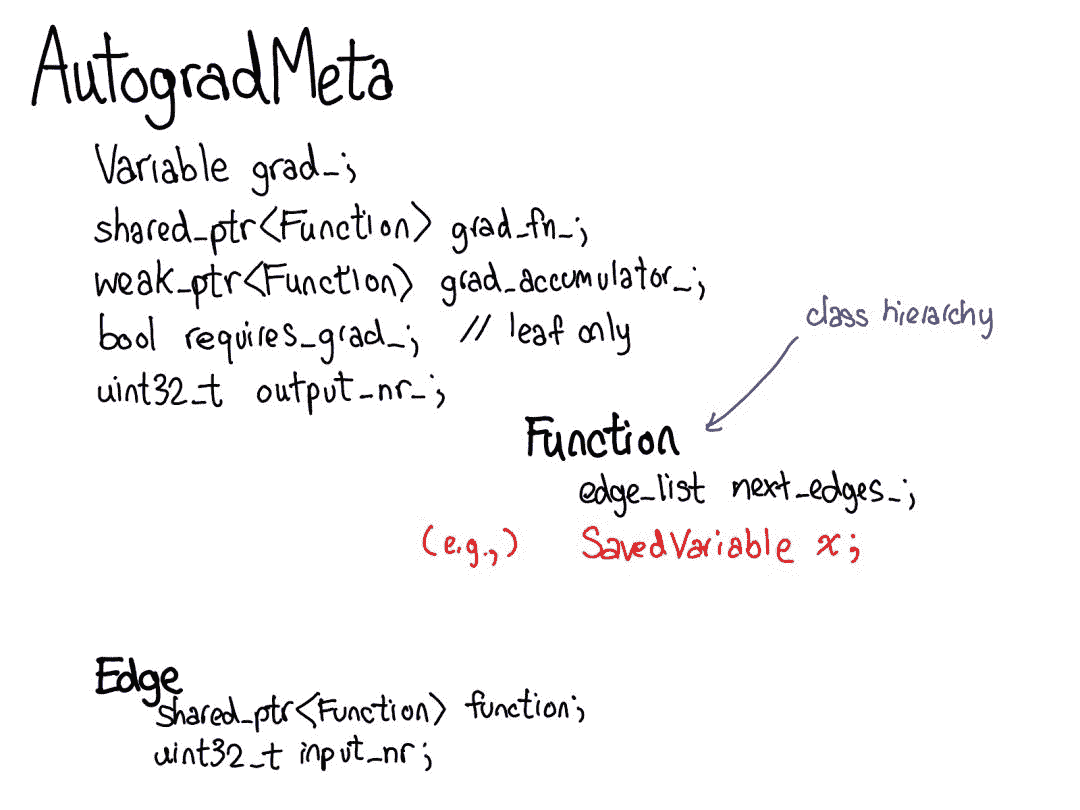 AutogradMeta
Variable grad_;
shared_ptr<Function> grad_fn_;
weak_ptr<Function> grad_accumulator_;
bool requires_grad_; // leaf only
uint32_t output_nr_;
class hierarchy
Function
edge_list next_edges_;
(e.g.,) SavedVariable x;
Edge
shared_ptr<Function> function;
uint32_t input_nr;